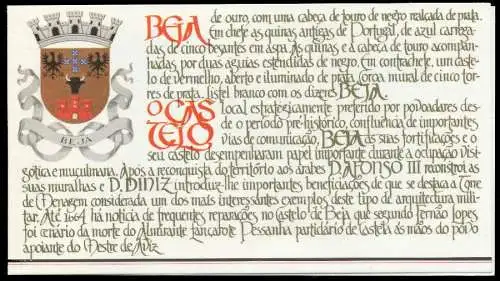 BEJA de ouro, com uma cabeça de touro de negro realçada de prata.
Em chefe as quinas antigas de Portugal, de azul carrega-
das de cinco besantes em aspa. As quinas e a cabeça de touro acompan-
hadas, por duas águias estendidas de negro. Em contrachefe, um caste-
lo de vermelho, aberto e iluminado de prata. Coroa mural de cinco tor-
res de prata. Listel branco com os dizeres BEJA.
O CAS local estrategicamente preferido por povoadores des-
TELO de o período pré-histórico, confluência de importantes
vias de comunicação, BEJA as suas fortificações e o
seu castelo desempenharam papel importante durante a ocupação visi-
gótica e muçulmana. Após a reconquista do território aos árabes D. AFONSO III reconstroi as
suas muralhas e D. DINIZ introduz-lhe importantes beneficiações de que se destaca a Torre
de Menagem considerada um dos mais interessantes exemplos deste tipo de arquitectura mili-
tar. Até 1664 há notícia de frequentes reparações no Castelo de Beja que segundo Fernão Lopes
foi cenário da morte do Almirante Lançarote Pessanha partidário de Castela às mãos do povo
apoiante do Mestre de Aviz
BEJA